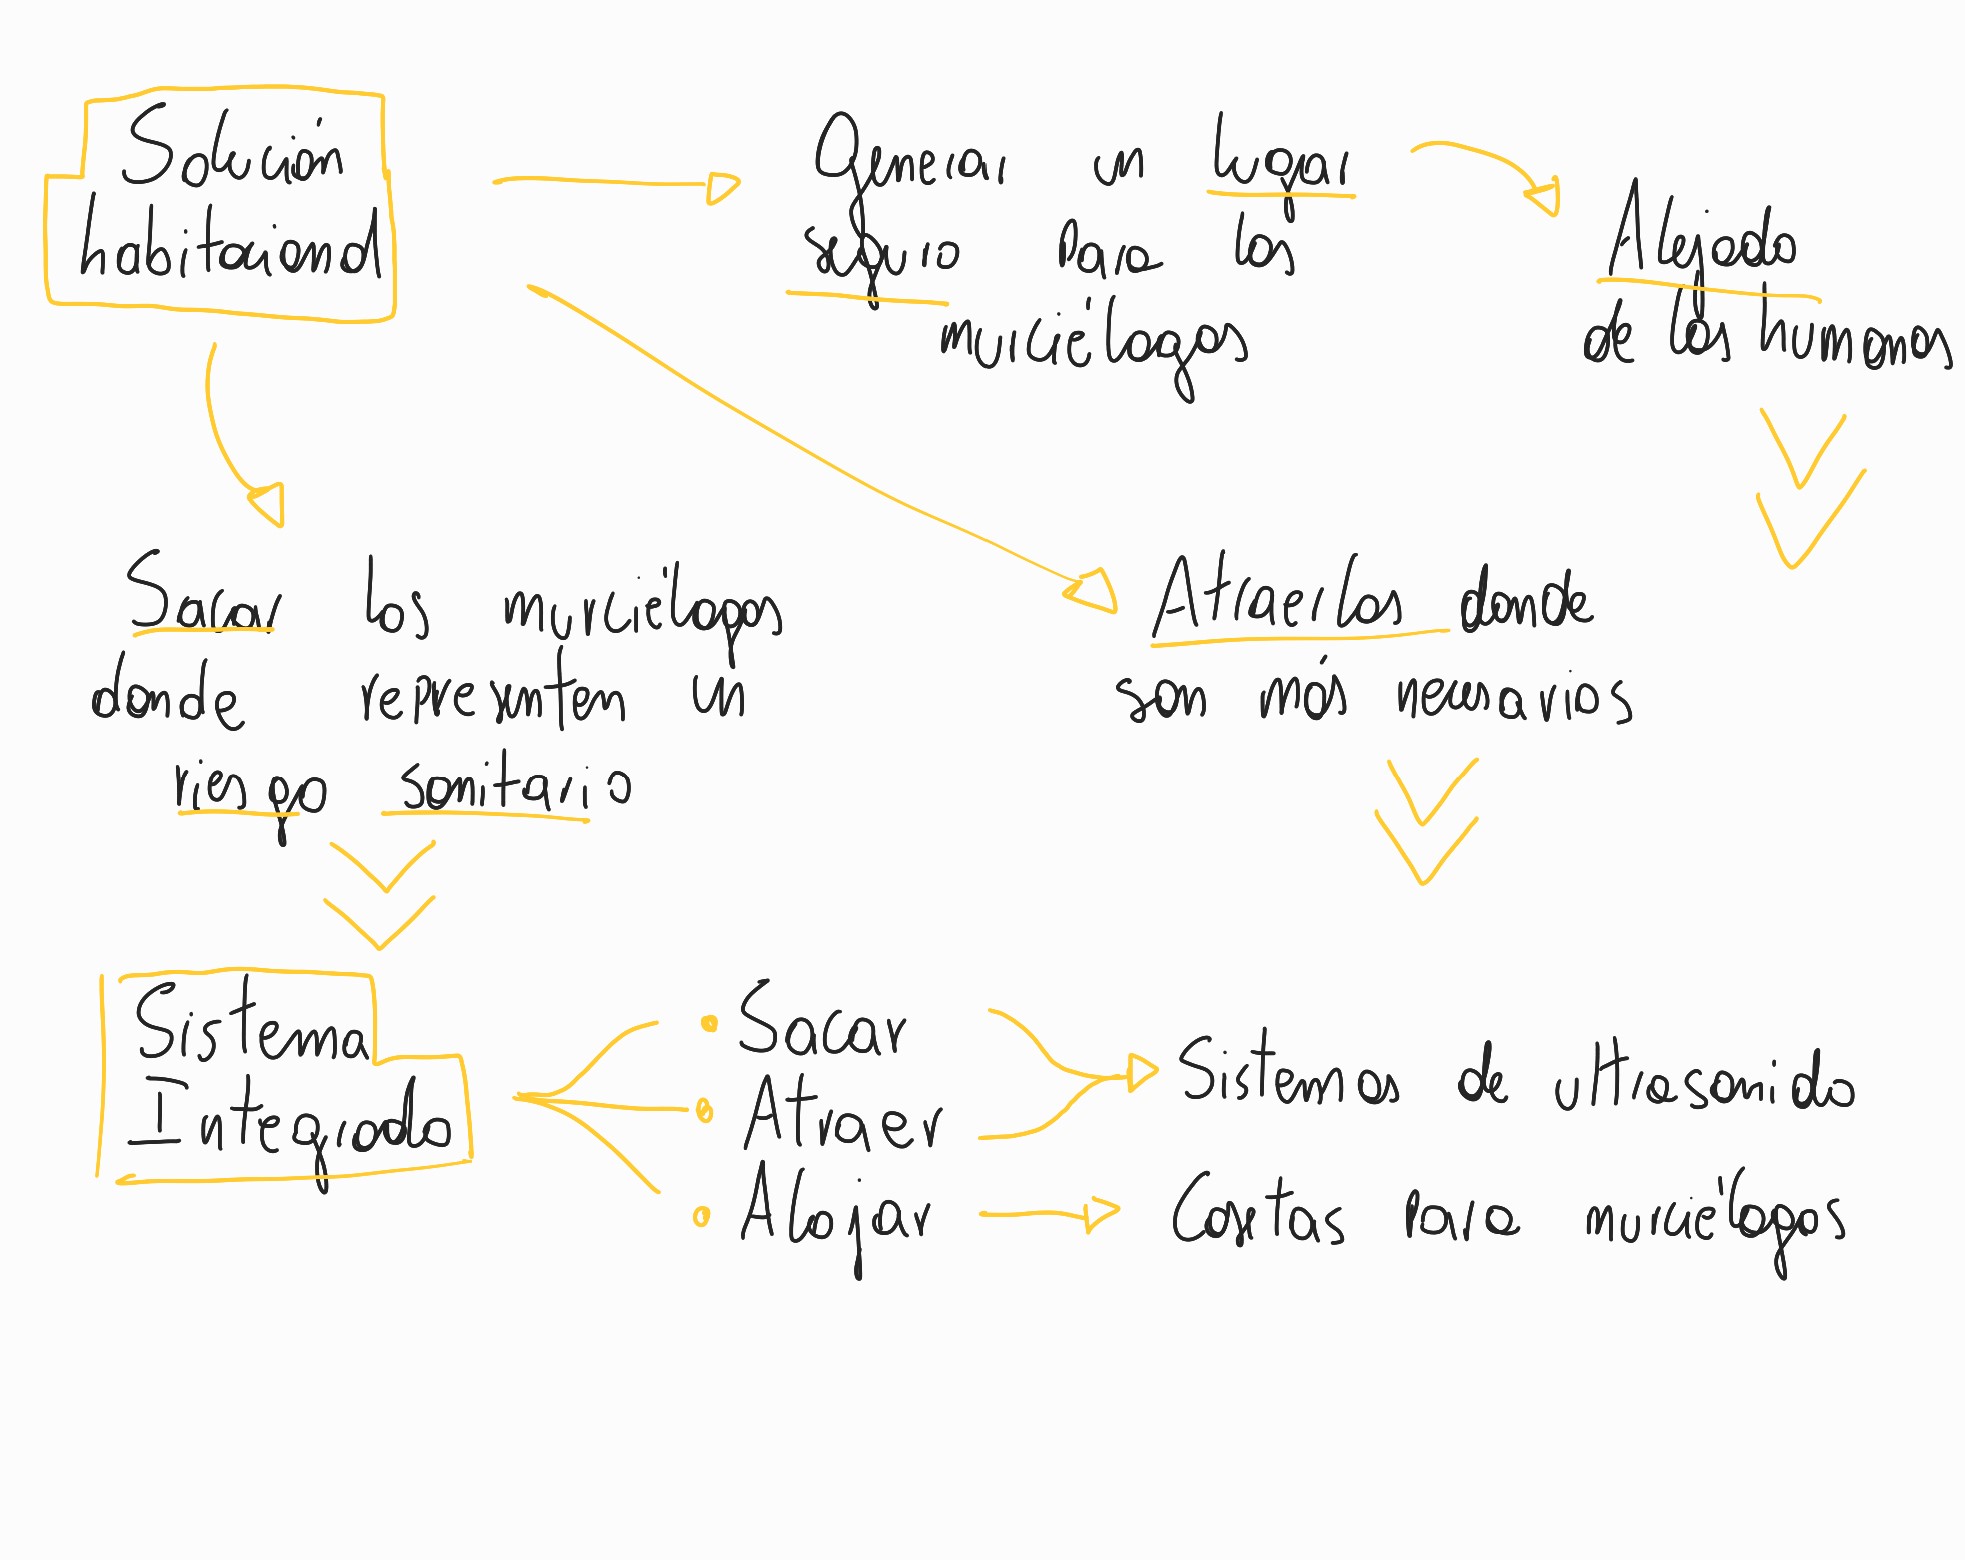 Solución
habitacional
Generar un lugar
seguro para los
murciélagos
Alejado
de los humanos
Sacar los murciélagos
donde representen un
riesgo sanitario
Atraerlos donde
son más necesarios
Sistema
Integrado
Sacar
Atraer
Alojar
Sistemas de ultrasonido
Casitas para murciélagos